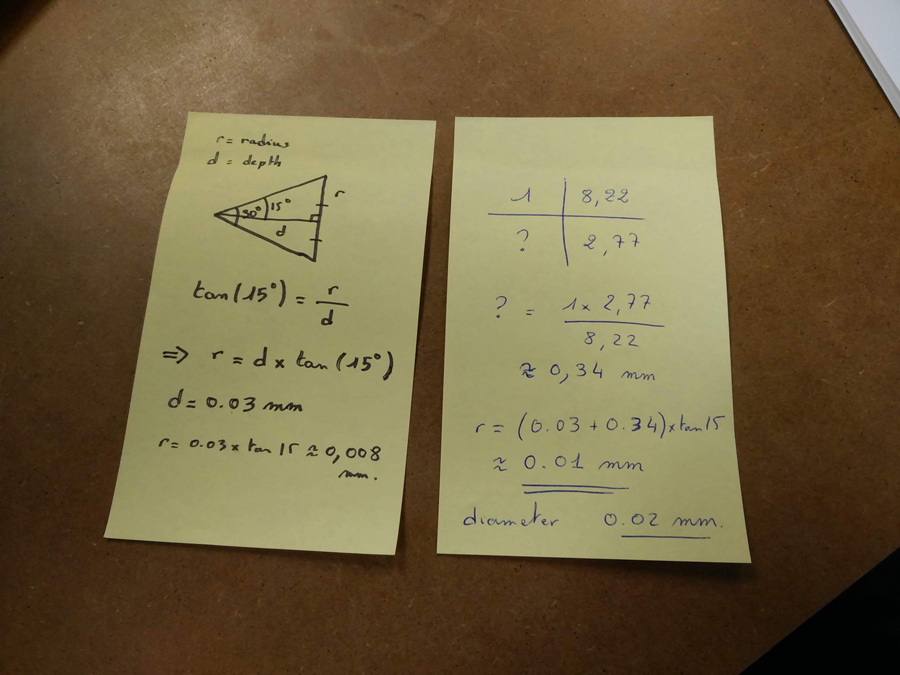 r = radius
d = depth
30° 15° r
d
tan(15°) = r/d
=> r = d x tan(15°)
d = 0.03 mm
r = 0.03 x tan 15 ≈ 0,008
mm.
1 | 8,22
? | 2,77
? = 1 x 2,77 / 8,22
≈ 0,34 mm
r = (0.03 + 0.34) x tan 15
≈ 0.01 mm
diameter 0.02 mm.